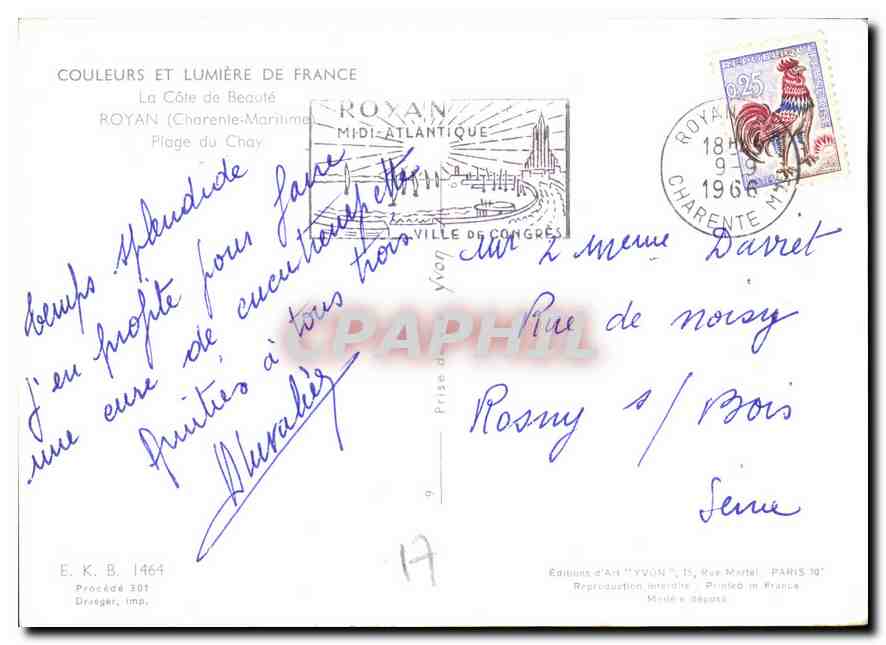 COULEURS ET LUMIÈRE DE FRANCE
La Côte de Beauté
ROYAN (Charente-Maritime)
Plage du Chay
ROYAN
MIDI-ATLANTIQUE
VILLE DE CONGRÈS
REPUBLIQUE FRANÇAISE
0,25
ROYAN
18
9-9
1966
CHARENTE Mme
temps splendide
j'en profite pour faire
une cure de
Amitiés à tous trois
Mr & Mme Davret
Rue de noisy
Rosny s/ Bois
Seine
Prise de
Yvon
9
CPAPHIL
17
E. K. B. 1464
Procédé 301
Draeger, imp.
Éditions d'Art "YVON", 15, Rue Martel - PARIS 10e
Reproduction interdite - Printed in France
Modèle déposé